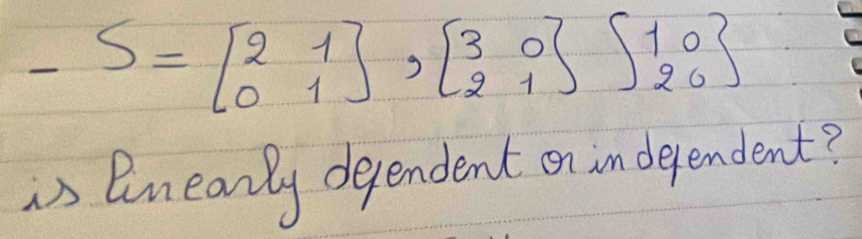 - S = [2 1], [3 0] [1 0]
[0 1] [2 1] [2 0]
is linearly dependent or independent?